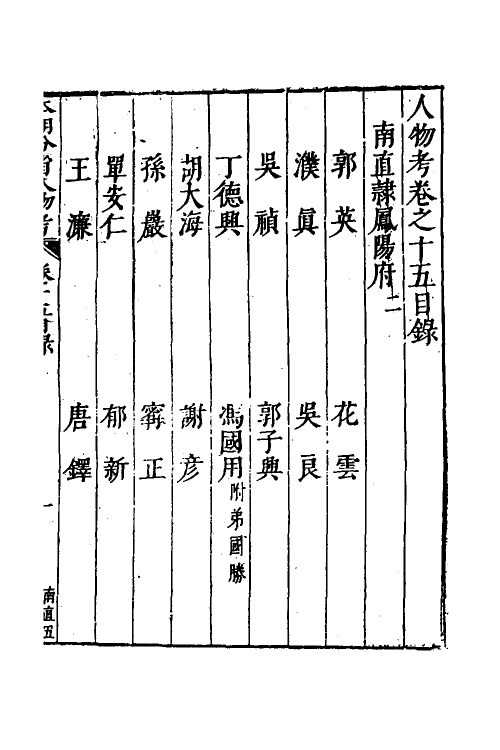 人物考卷之十五目錄
南直隸鳳陽府二
郭英 花雲
濮眞 吳良
吳禎 郭子興
丁德興 馮國用附弟國勝
胡大海 謝彥
孫巖 甯正
單安仁 郁新
王濂 唐鐸
本朝分省人物考 卷十五目錄 一 南直五